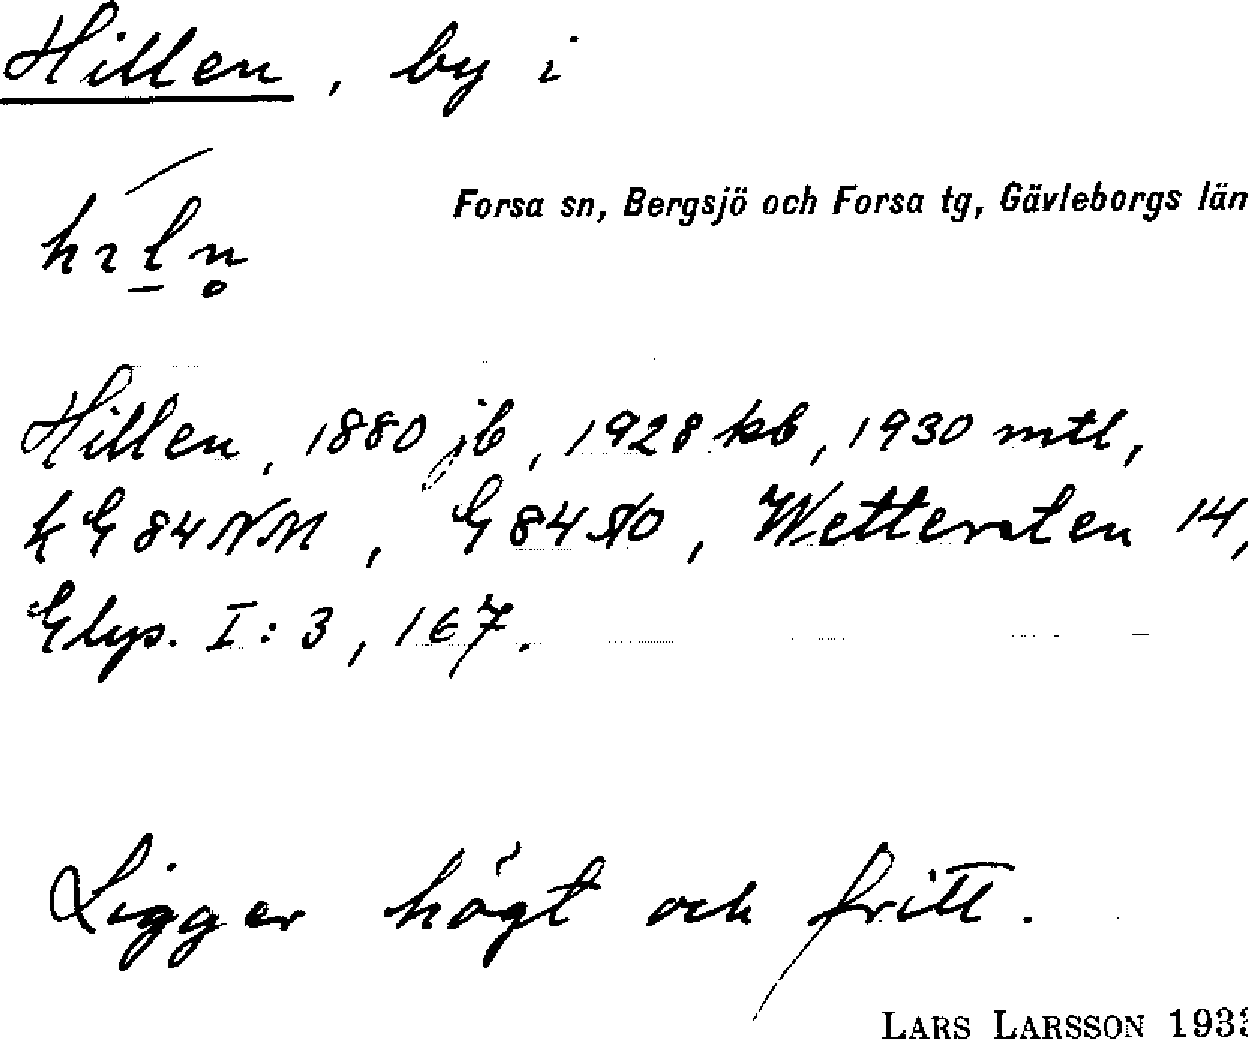 Hillen, by i
Forsa sn, Bergsjö och Forsa tg, Gävleborgs län
Hillen, 1880 jb, 1928 kb, 1930 mtl,
k G 84 NM, G 84 NO, Wettersten 14,
Elgs. I:3, 167.
Ligger högt och fritt.
LARS LARSSON 1933